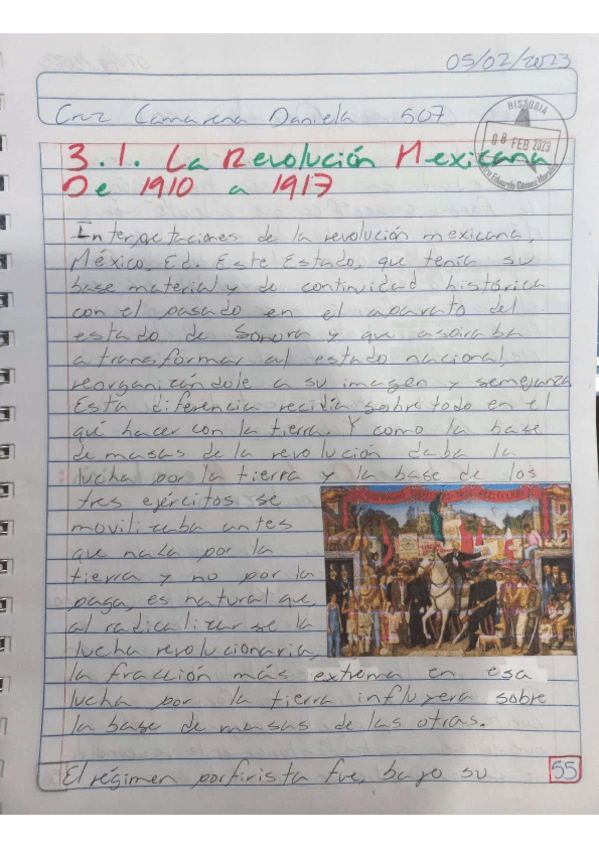 05/02/2023
Cruz Camarena Daniela 507
HISTORIA
08 FEB 2023
3.1. La Revolución Mexicana
De 1910 a 1917
Interpretaciones de la revolución mexicana,
México, Ed. Este Estado, que tenía su
base material y de continuidad histórica
con el pasado en el aparato del
estado de Sonora y que aspiraba
a transformar al estado nacional,
reorganizándole a su imagen y semejanza
Esta diferencia recidía sobre todo en el
qué hacer con la tierra. Y como la base
de masas de la revolución daba la
lucha por la tierra y la base de los
tres ejércitos se
movilizaba antes
que nada por la
tierra y no por la
paga, es natural que,
al radicalizarse la
lucha revolucionaria,
la fracción más extrema en esa
lucha por la tierra influyera sobre
la base de masas de las otras.
El régimen porfirista fue, bajo su
55